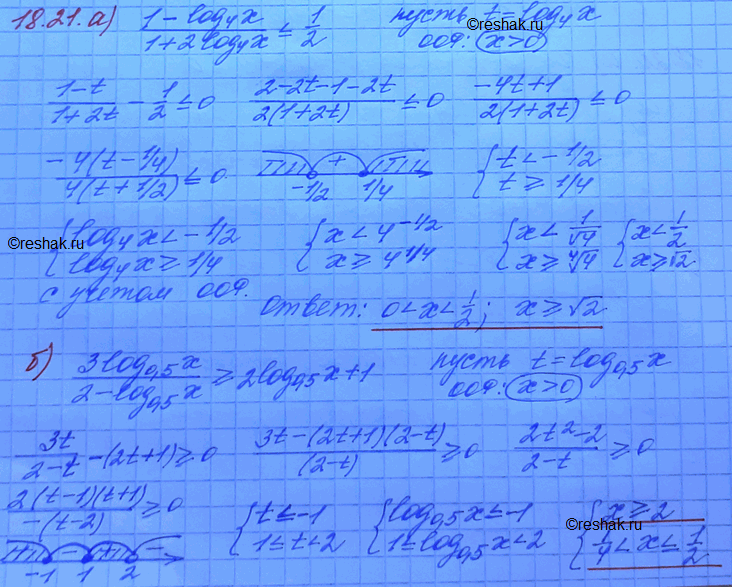 18.21. а) (1-log₄x)/(1+2log₄x) ≤ 1/2   пусть t=log₄x
ООФ: x>0
(1-t)/(1+2t) - 1/2 ≤ 0   (2-2t-1-2t)/(2(1+2t)) ≤ 0   (-4t+1)/(2(1+2t)) ≤ 0
(-4(t-1/4))/(4(t+1/2)) ≤ 0   + -1/2 1/4   { t < -1/2
t ≥ 1/4
©reshak.ru { log₄x < -1/2   { x < 4^(-1/2)   { x < 1/√4   { x < 1/2
log₄x ≥ 1/4   x ≥ 4^(1/4)   x ≥ ⁴√4   x ≥ √2 ©reshak.ru
с учетом ООФ.
ответ: 0 < x < 1/2; x ≥ √2
б) (3log₀,₅x)/(2-log₀,₅x) ≥ 2log₀,₅x+1   пусть t=log₀,₅x
ООФ: x>0
3t/(2-t) - (2t+1) ≥ 0   (3t-(2t+1)(2-t))/(2-t) ≥ 0   (2t²-2)/(2-t) ≥ 0
(2(t-1)(t+1))/(-(t-2)) ≥ 0   { t ≤ -1   { log₀,₅x ≤ -1   { x ≥ 2
1 ≤ t < 2   1 ≤ log₀,₅x < 2   1/4 < x ≤ 1/2
+ - + -
-1 1 2
©reshak.ru